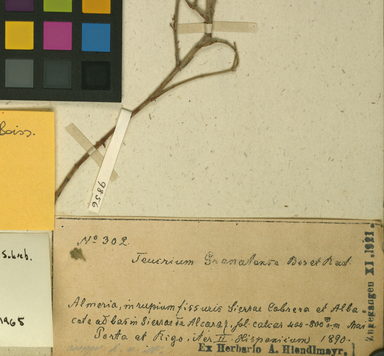 Boiss.
9856
s. Web.
1965
Nº 302
Teucrium Granatense Bos et Reut
Almeria, in rupium fissuris Sierrae Cabrera et Alba-
cete ad basin Sierrae de Alcaraz, sol. calcar. 400-800 m
Porta et Rigo, iter II Hispanicum 1890.
Ex Herbario A. Hiendlmayr,
Zugegangen XI. 1921.